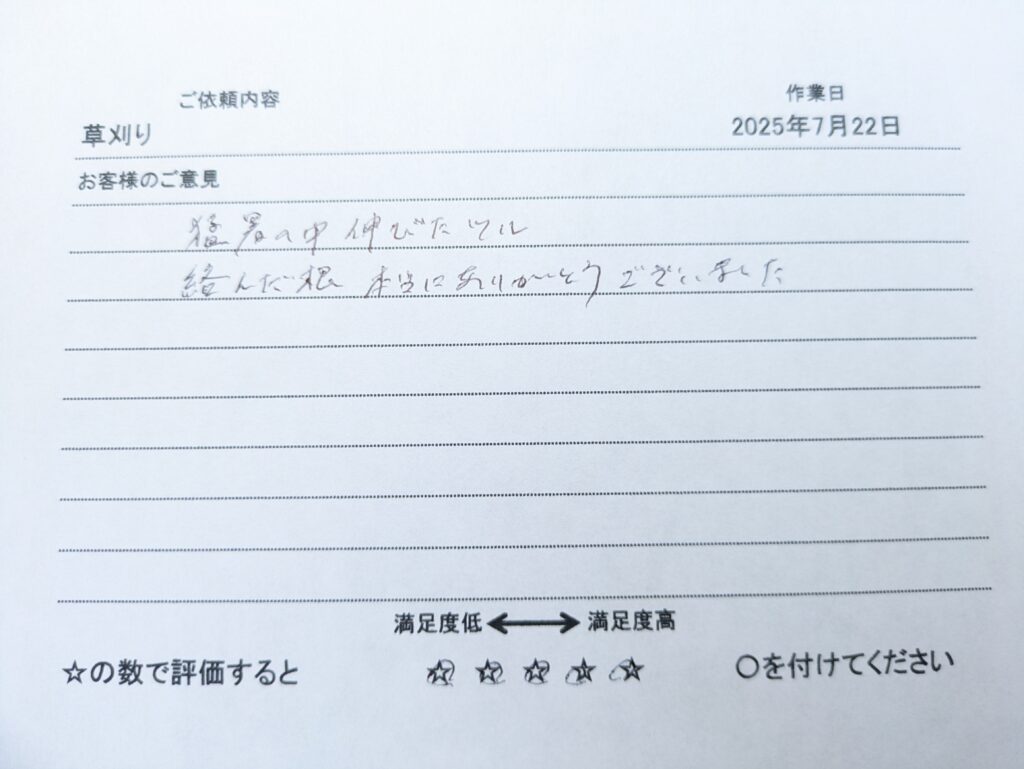 ご依頼内容
作業日
草刈り
2025年7月22日
お客様のご意見
猛暑の中 伸びたツル
絡んだ根 本当にありがとうございました
満足度低 ⟷ 満足度高
☆の数で評価すると ☆ ☆ ☆ ☆ ☆ 〇を付けてください